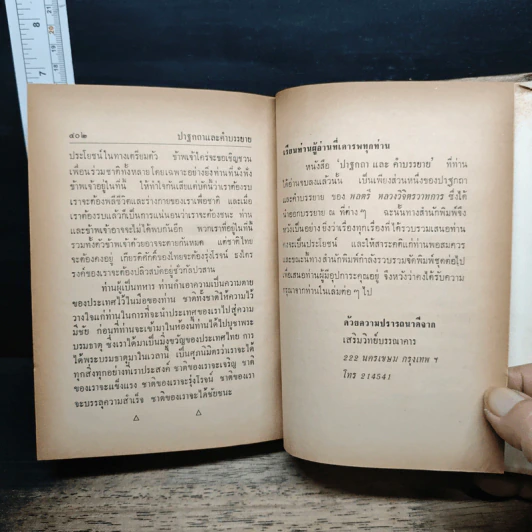 ๔๐๒ ปาฐกถาและคำบรรยาย
ประโยชน์ในทางเตรียมตัว ข้าพเจ้าใคร่จะขอเชิญชวน
เพื่อนร่วมชาติทั้งหลายโดยเฉพาะอย่างยิ่งท่านที่นั่งฟัง
ข้าพเจ้าอยู่ในที่นี้ ให้ทำใจกันเสียแต่บัดนี้ว่าเราต้องรบ
เราจะต้องพลีชีวิตและร่างกายของเราเพื่อชาติ และเมื่อ
เราต้องรบแล้วก็เป็นการแน่นอนว่าเราจะต้องชนะ ท่าน
และข้าพเจ้าอาจจะไม่ได้พบกันอีก พวกเราที่อยู่ในที่นี้
รวมทั้งตัวข้าพเจ้าด้วยอาจจะตายกันหมด แต่ชาติไทย
จะต้องคงอยู่ เกียรติศักดิ์ของไทยจะต้องรุ่งโรจน์ ธงไตร
รงค์ของเราจะต้องปลิวสบัดอยู่ชั่วกัลปาวสาน
ท่านผู้เป็นทหาร ท่านกำเอาความเป็นความตาย
ของประเทศไว้ในมือของท่าน ชาติทั้งชาติให้ความไว้
วางใจแก่ท่านในการที่จะนำประเทศของเราไปสู่ความ
มีชัย ก่อนที่ท่านจะเข้ามาในห้องนี้ท่านได้ไปบูชาพระ
บรมธาตุ ซึ่งเราได้มาเป็นมิ่งขวัญของประเทศไทย การ
ได้พระบรมธาตุมาในเวลานี้ เป็นศุภนิมิตรว่าเราจะได้
ทุกสิ่งทุกอย่างที่เราประสงค์ ชาติของเราจะเจริญ ชาติ
ของเราจะแข็งแรง ชาติของเราจะรุ่งโรจน์ ชาติของเรา
จะบรรลุความสำเร็จ ชาติของเราจะได้ชัยชนะ
เรียนท่านผู้อ่านที่เคารพทุกท่าน
หนังสือ 'ปาฐกถา และ คำบรรยาย' ที่ท่าน
ได้อ่านจบลงแล้วนั้น เป็นเพียงส่วนหนึ่งของปาฐกถา
และคำบรรยาย ของ พลตรี หลวงวิจิตรวาทการ ซึ่งได้
นำออกบรรยาย ณ ที่ต่าง ๆ ฉะนั้นทางสำนักพิมพ์จึง
หวังเป็นอย่างยิ่งว่าเรื่องทุกเรื่องที่ได้รวบรวมเสนอท่าน
คงจะเป็นประโยชน์ และให้สาระคติแก่ท่านพอสมควร
และขณะนี้ทางสำนักพิมพ์กำลังรวบรวมจัดพิมพ์ชุดต่อไป
เพื่อเสนอท่านผู้มีอุปการะคุณอยู่ จึงหวังว่าคงได้รับความ
กรุณาจากท่านในเล่มต่อ ๆ ไป
ด้วยความปรารถนาดีจาก
เสริมวิทย์บรรณาคาร
222 นครเขษม กรุงเทพ ฯ
โทร 214541
7
8
19
20
21